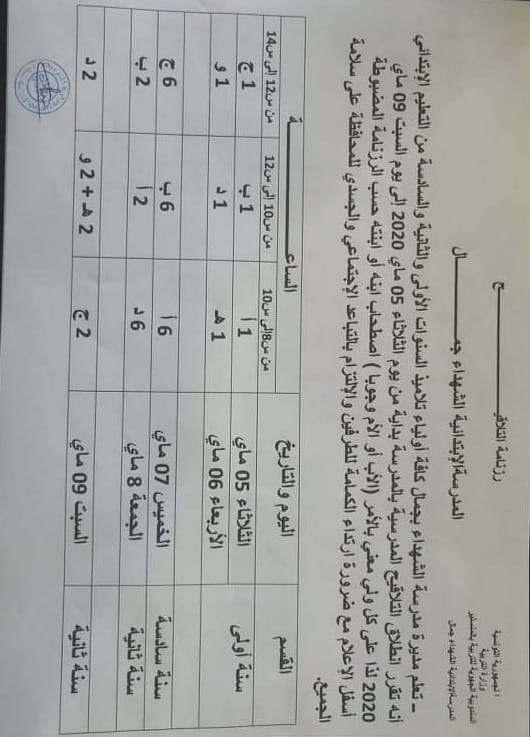 الجمهورية التونسية
وزارة التربية
المندوبية الجهوية للتربية بالمنستير
المدرسة الإبتدائية الشهداء جمال
رزنامة التلاقيـــــــــح
المدرسة الإبتدائية الشهداء جمـــــــــال
ـ تعلم مديرة مدرسة الشهداء بجمال كافة أولياء تلاميذ السنوات الأولى والثانية والسادسة من التعليم الإبتدائي
أنه تقرر انطلاق التلاقيح المدرسية بالمدرسة بداية من يوم الثلاثاء 05 ماي 2020 إلى يوم السبت 09 ماي
2020 لذا على كل ولي معني بالأمر (الأب أو الأم وجوبا ) اصطحاب ابنه أو ابنته حسب الرزنامة المضبوطة
أسفل الإعلام مع ضرورة ارتداء الكمامة للطرفين والإلتزام بالتباعد الإجتماعي والجسدي للمحافظة على سلامة
الجميع.
القسم اليوم والتاريخ الساعـــــــــة
من س8إلى س10 من س10 إلى س12 من س12 إلى س14
سنة أولى الثلاثاء 05 ماي 1 أ 1 ب 1 ج
الأربعاء 06 ماي 1 هـ 1 د 1 و
سنة سادسة الخميس 07 ماي 6 أ 6 ب 6 ج
سنة ثانية الجمعة 8 ماي 6 د 2 أ 2 ب
سنة ثانية السبت 09 ماي 2 ج 2 هـ + 2 و 2 د